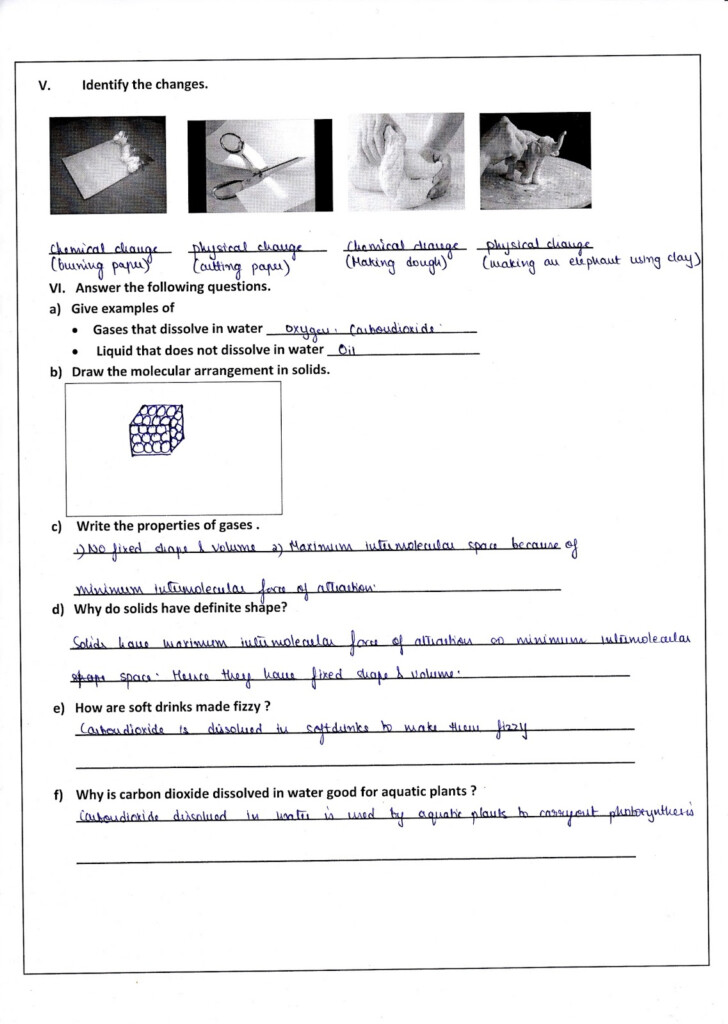 V. Identify the changes.
chemical change physical change chemical change physical change
(burning paper) (cutting paper) (Making dough) (making an elephant using clay)
VI. Answer the following questions.
a) Give examples of
• Gases that dissolve in water oxygen, Carbondioxide.
• Liquid that does not dissolve in water Oil
b) Draw the molecular arrangement in solids.
c) Write the properties of gases .
1) No fixed shape & volume 2) Maximum intermolecular space because of
minimum intermolecular force of attraction.
d) Why do solids have definite shape?
Solids have maximum intermolecular force of attraction so minimum intermolecular
space. Hence they have fixed shape & volume.
e) How are soft drinks made fizzy ?
Carbondioxide is dissolved in softdrinks to make them fizzy
f) Why is carbon dioxide dissolved in water good for aquatic plants ?
Carbondioxide dissolved in water is used by aquatic plants to carryout photosynthesis